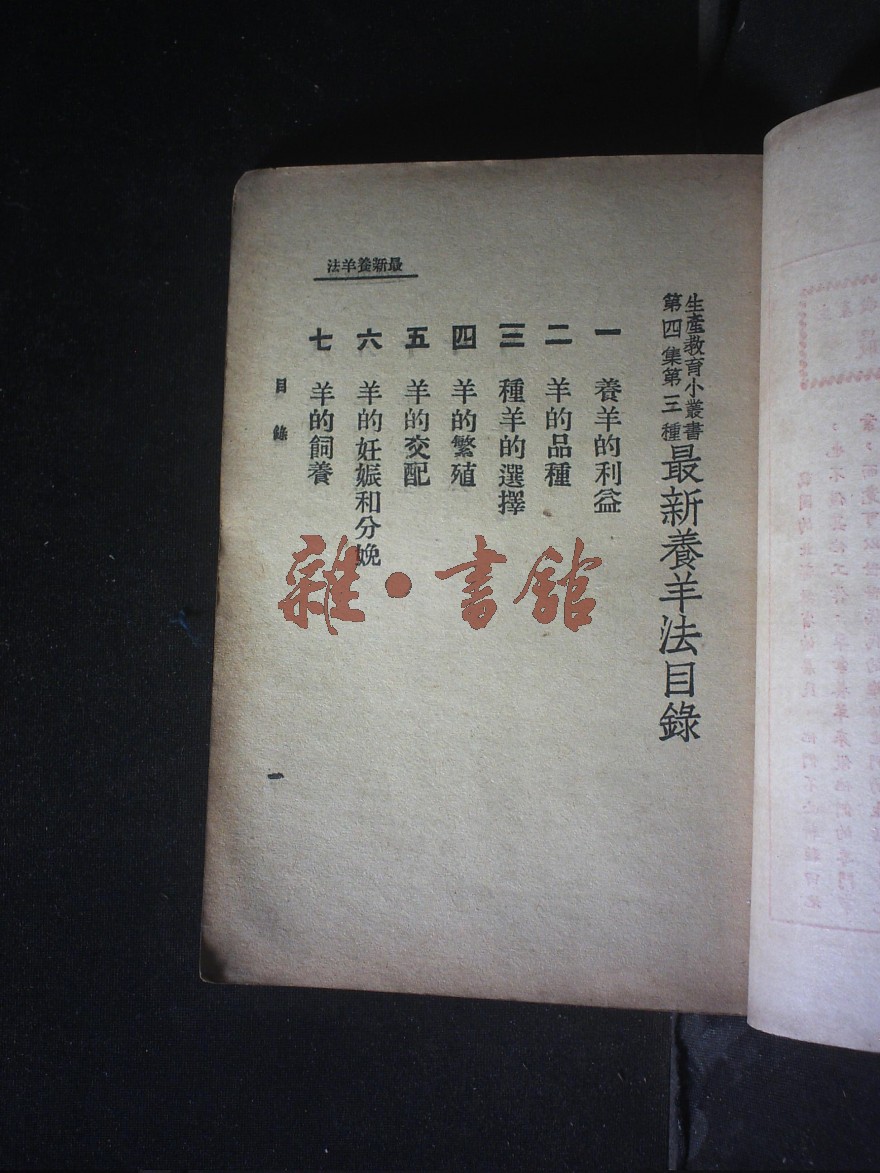 生產教育小叢書
第四集第三種
最新養羊法目錄
一 養羊的利益
二 羊的品種
三 種羊的選擇
四 羊的繁殖
五 羊的交配
六 羊的妊娠和分娩
七 羊的飼養
最新養羊法
目錄
一
雜·書館